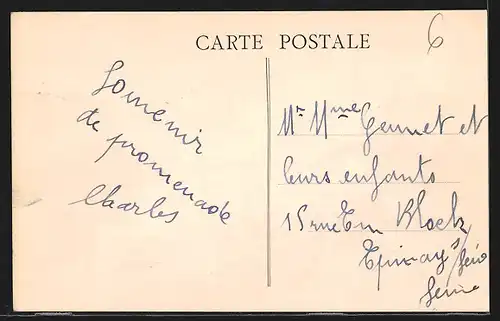 CARTE POSTALE
6
Souvenir
de promenade
Charles
Mr Mme Gennet et
leurs enfants
15 rue Em Bloch
Epinay s/ Seine
Seine